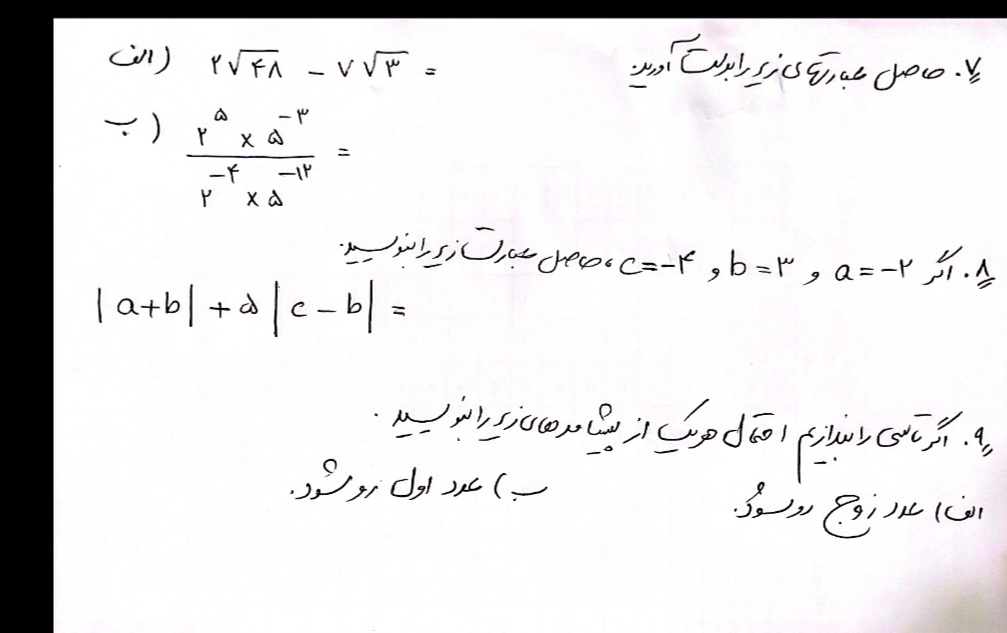 ۷. حاصل عبارتهای زیر را بدست آورید.
الف) ۲√۴۸ - ۷√۳ =
ب) (۲^۵ × ۵^-۳) / (۲^-۴ × ۵^-۱۲) =
۸. اگر a=-۲ و b=۳ و c=-۴، حاصل عبارت زیر را بنویسید.
|a+b| + ۵|c-b| =
۹. اگر تاسی را بیندازیم احتمال هریک از پیشامدهای زیر را بنویسید.
الف) عدد زوج رو شود. ب) عدد اول رو شود.